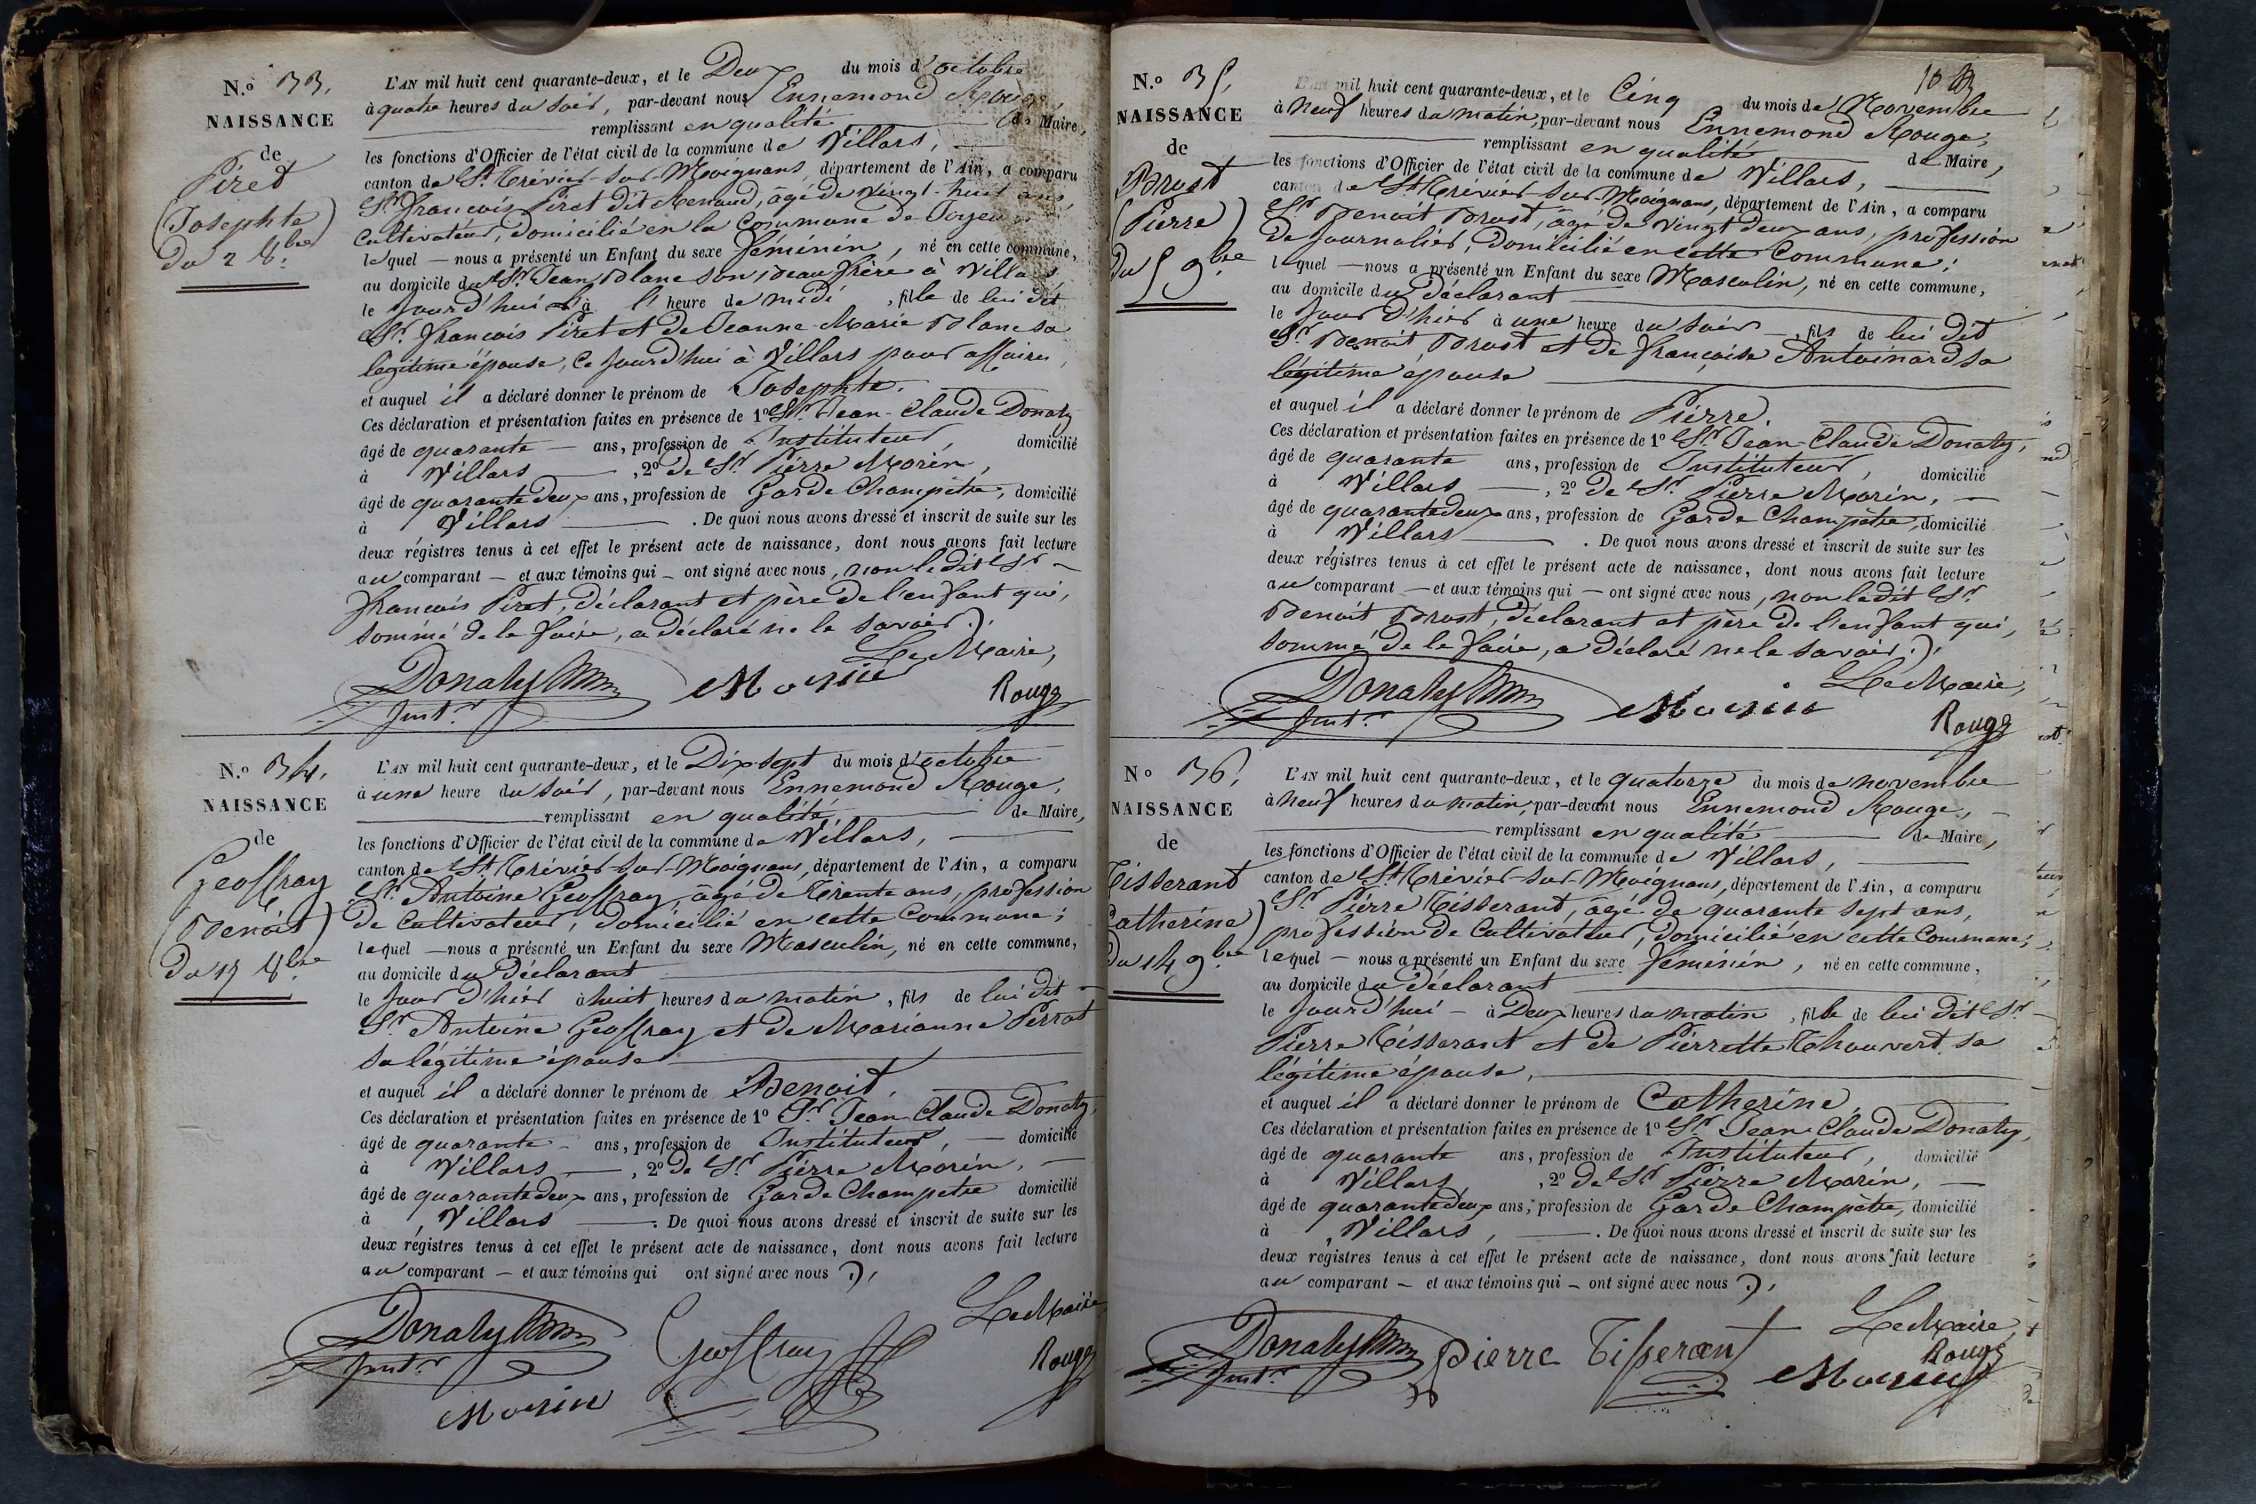 N.o 33.
NAISSANCE
de
Piret
(Josephte)
du 2 8.bre
L'AN mil huit cent quarante-deux, et le Deux du mois d'octobre
à quatre heures du soir, par-devant nous Ennemond Rouge,
remplissant en qualité de Maire,
les fonctions d'Officier de l'état civil de la commune de Villars,
canton de St. Trévier-sur-Moignans, département de l'Ain, a comparu
Sr. françois Piret dit Renaud, âgé de vingt-huit ans,
Cultivateur, domicilié en la Commune de
lequel — nous a présenté un Enfant du sexe féminin, né en cette commune,
au domicile du Sr. Jean Blanc son beau frère à Villars
le jour d'hui à l' heure de midi, fille de lui dit
Sr. françois Piret et de Jeanne-Marie Blanc sa
légitime épouse, ce jourd'hui à Villars pour affaires,
et auquel il a déclaré donner le prénom de Josephte.
Ces déclaration et présentation faites en présence de 1o Sr. Jean-Claude Donaty
âgé de quarante — ans, profession de Instituteur, domicilié
à Villars —, 2o de Sr. Pierre Morin,
âgé de quarante deux ans, profession de Garde Champêtre, domicilié
à Villars — . De quoi nous avons dressé et inscrit de suite sur les
deux régistres tenus à cet effet le présent acte de naissance, dont nous avons fait lecture
au comparant — et aux témoins qui — ont signé avec nous, non le dit Sr. —
françois Piret, déclarant et père de l'enfant qui,
sommé de le faire, a déclaré ne le savoir.
Le Maire,
Donaty Morin Rouge
Inst.r
N.o 34.
NAISSANCE
de
Geoffray
(Benoit)
du 17 8bre
L'AN mil huit cent quarante-deux, et le Dix sept du mois d'octobre
à une heure du soir, par-devant nous Ennemond Rouge,
remplissant en qualité de Maire,
les fonctions d'Officier de l'état civil de la commune de Villars,
canton de St. Trévier-sur-Moignans, département de l'Ain, a comparu
Sr. Antoine Geoffray, âgé de Trente ans, profession
de Cultivateur, domicilié en cette Commune;
lequel — nous a présenté un Enfant du sexe Masculin, né en cette commune,
au domicile du Déclarant
le jour d'hier à huit heures du matin, fils de lui dit —
Sr. Antoine Geoffray et de Marianne Perrat
sa légitime épouse
et auquel il a déclaré donner le prénom de Benoit,
Ces déclaration et présentation faites en présence de 1o Sr. Jean-Claude Donaty,
âgé de quarante — ans, profession de Instituteur, — domicilié
à Villars —, 2o de Sr. Pierre Morin, —
âgé de quarante deux ans, profession de Garde Champetre domicilié
à Villars — . De quoi nous avons dressé et inscrit de suite sur les
deux régistres tenus à cet effet le présent acte de naissance, dont nous avons fait lecture
au comparant — et aux témoins qui ont signé avec nous
Le Maire
Donaty Geoffray Rouge
Inst.r
Morin
N.o 35,
NAISSANCE
de
Brost
(Pierre)
du 5 9bre
L'AN mil huit cent quarante-deux, et le Cinq du mois de Novembre
à Neuf heures du matin, par-devant nous Ennemond Rouge,
remplissant en qualité de Maire,
les fonctions d'Officier de l'état civil de la commune de Villars,
canton de St. Trévier-sur-Moignans, département de l'Ain, a comparu
Sr. Benoit Brost, âgé de vingt deux ans, profession
de journalier, domicilié en cette Commune;
lequel — nous a présenté un Enfant du sexe Masculin, né en cette commune,
au domicile du Déclarant
le jour d'hier à une heure du soir —, fils de lui dit
Sr. Benoit Brost et de françoise Antoinard sa
légitime épouse
et auquel il a déclaré donner le prénom de Pierre.
Ces déclaration et présentation faites en présence de 1o Sr. Jean-Claude Donaty,
âgé de quarante ans, profession de Instituteur, domicilié
à Villars —, 2o De Sr. Pierre Morin, —
âgé de quarante deux ans, profession de Garde Champêtre, domicilié
à Villars — . De quoi nous avons dressé et inscrit de suite sur les
deux régistres tenus à cet effet le présent acte de naissance, dont nous avons fait lecture
au comparant — et aux témoins qui — ont signé avec nous, non le dit Sr.
Benoit Brost, déclarant et père de l'enfant qui,
sommé de le faire, a déclaré ne le savoir.
Le Maire,
Donaty Morin Rouge
Inst.r
No 36,
NAISSANCE
de
Tisserant
Catherine)
du 14 9bre
L'AN mil huit cent quarante-deux, et le quatorze du mois de novembre
à Neuf heures du matin, par-devant nous Ennemond Rouge, —
remplissant en qualité de Maire,
les fonctions d'Officier de l'état civil de la commune de Villars,
canton de St. Trévier-sur-Moignans, département de l'Ain, a comparu
Sr. Pierre Tisserant, âgé de quarante sept ans,
profession de Cultivateur, domicilié en cette Commune;
lequel — nous a présenté un Enfant du sexe féminin, né en cette commune,
au domicile du Déclarant
le jourd'hui — à Deux heures du matin, fille de lui dit Sr. —
Pierre Tisserant et de Pierrette Thouvert sa
légitime épouse,
et auquel il a déclaré donner le prénom de Catherine,
Ces déclaration et présentation faites en présence de 1o Sr. Jean-Claude Donaty,
âgé de quarante ans, profession de Instituteur, domicilié
à Villars, 2o de Sr. Pierre Morin, —
âgé de quarante deux ans, profession de Garde Champêtre, domicilié
à Villars, — . De quoi nous avons dressé et inscrit de suite sur les
deux régistres tenus à cet effet le présent acte de naissance, dont nous avons fait lecture
au comparant — et aux témoins qui — ont signé avec nous
Le Maire,
Donaty pierre Tisserant Rouge
Inst.r Morin